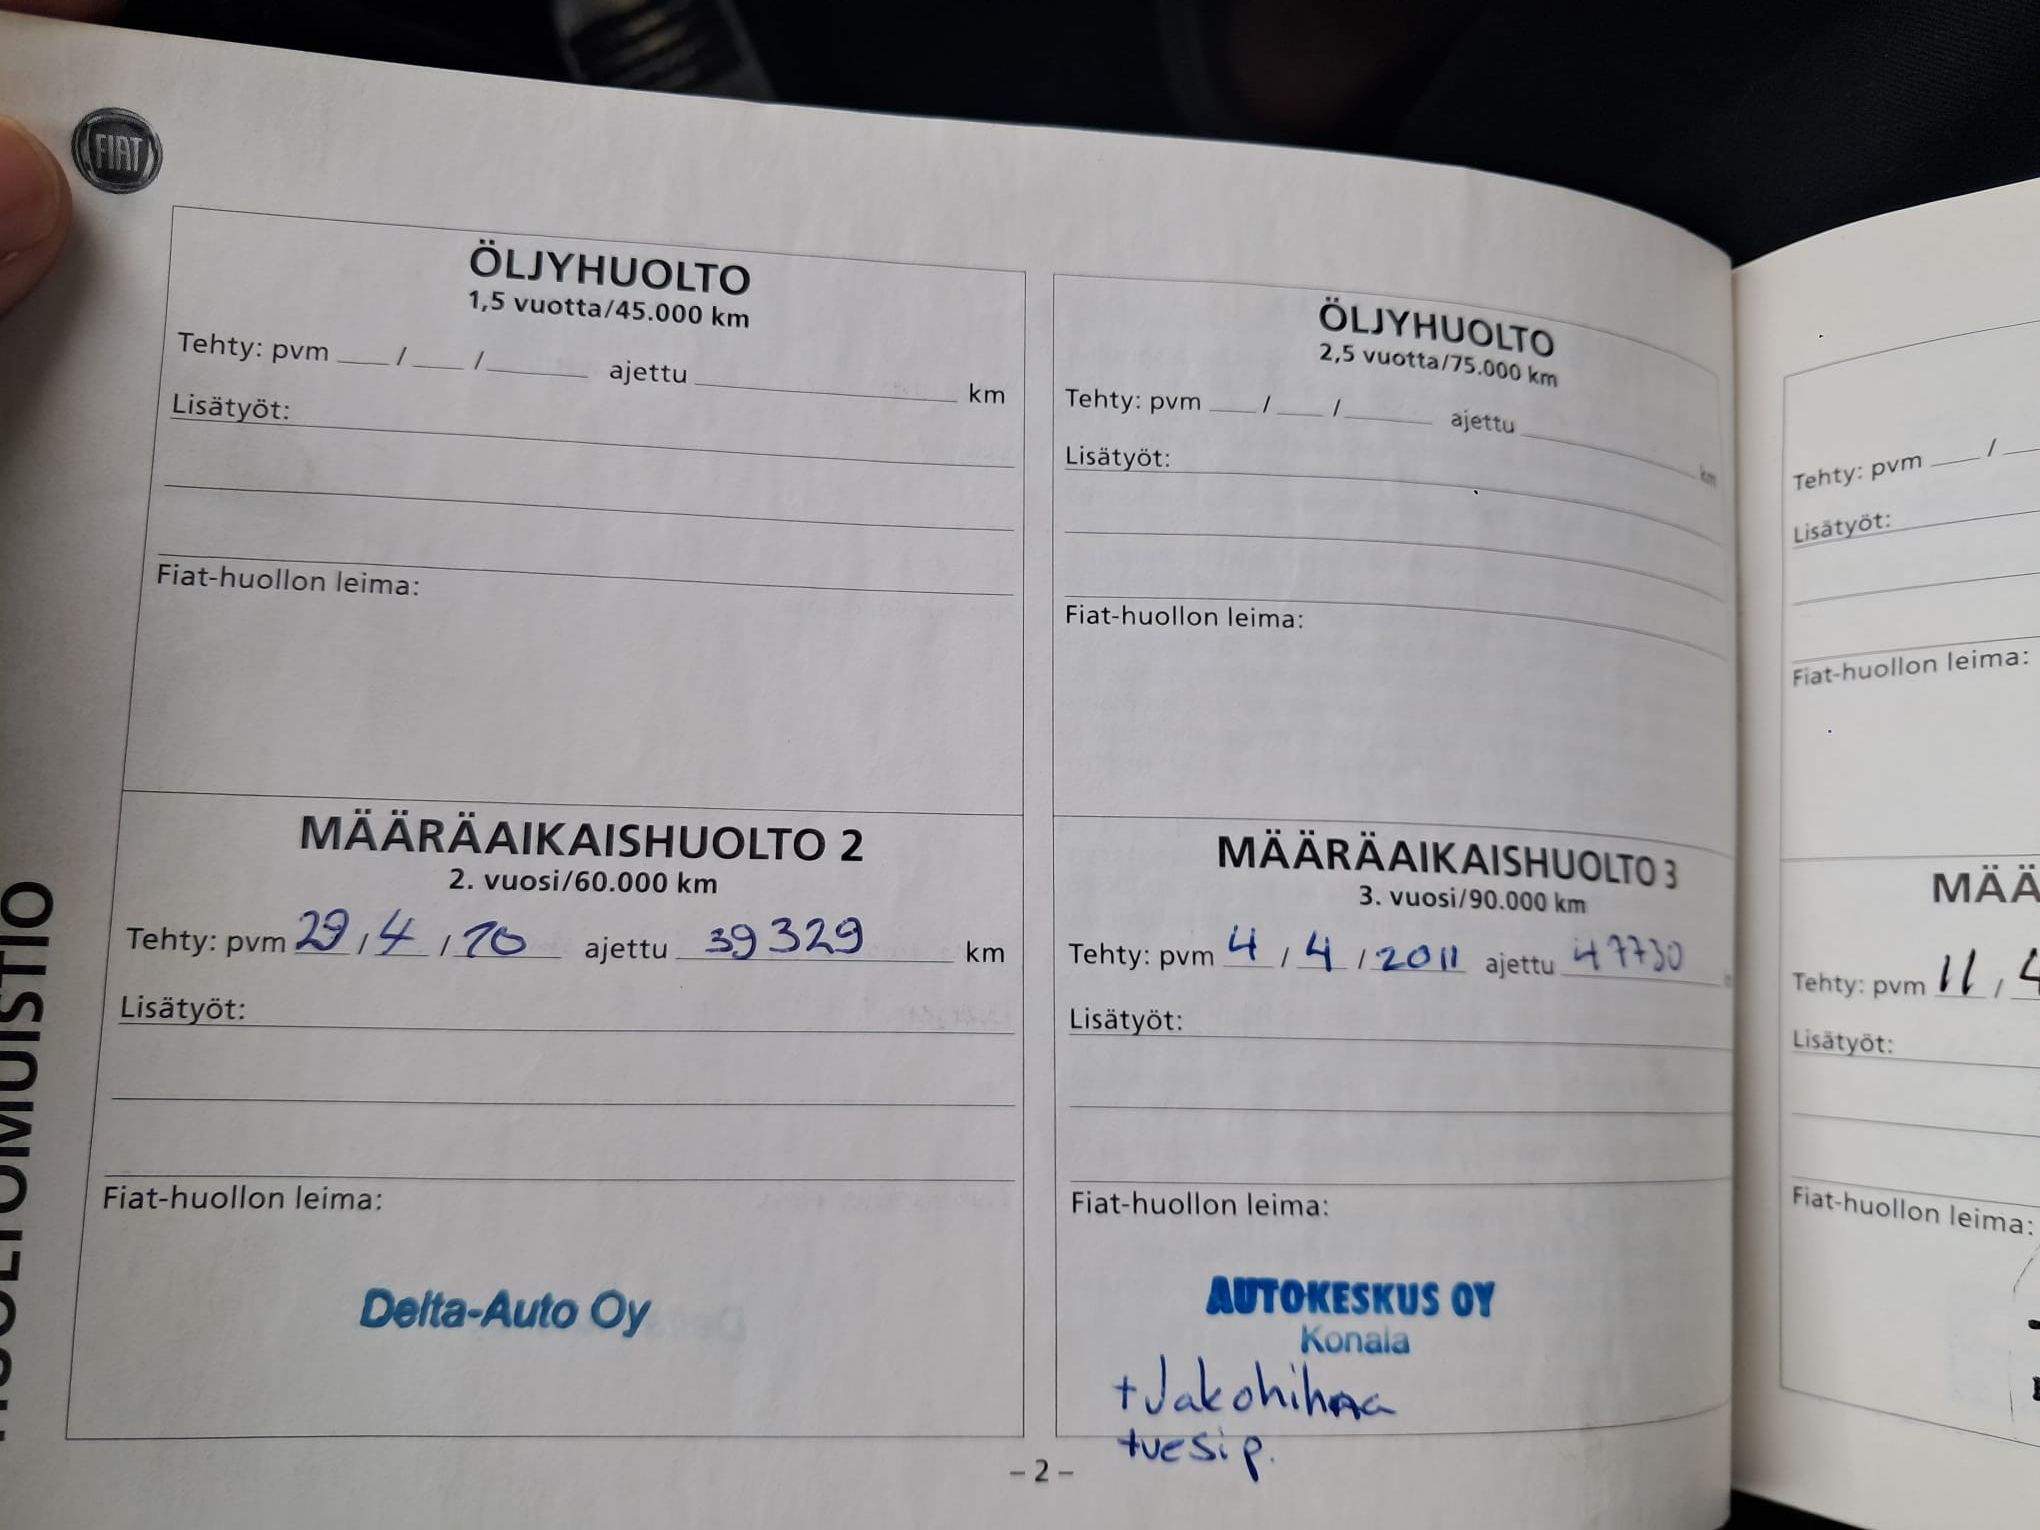 FIAT
ÖLJYHUOLTO
1,5 vuotta/45.000 km
Tehty: pvm ___ / ___ / ___ ajettu ___ km
Lisätyöt:
Fiat-huollon leima:
MÄÄRÄAIKAISHUOLTO 2
2. vuosi/60.000 km
Tehty: pvm 29 / 4 / 10 ajettu 39329 km
Lisätyöt:
Fiat-huollon leima:
Delta-Auto Oy
ÖLJYHUOLTO
2,5 vuotta/75.000 km
Tehty: pvm ___ / ___ / ___ ajettu ___ km
Lisätyöt:
Fiat-huollon leima:
MÄÄRÄAIKAISHUOLTO 3
3. vuosi/90.000 km
Tehty: pvm 4 / 4 / 2011 ajettu 47730
Lisätyöt:
Fiat-huollon leima:
AUTOKESKUS OY
Konala
+Jakohihna
+vesip.
– 2 –
Tehty: pvm ___ /
Lisätyöt:
Fiat-huollon leima:
MÄÄ
Tehty: pvm 11 / 4
Lisätyöt:
Fiat-huollon leima:
HUOLTOMUISTIO